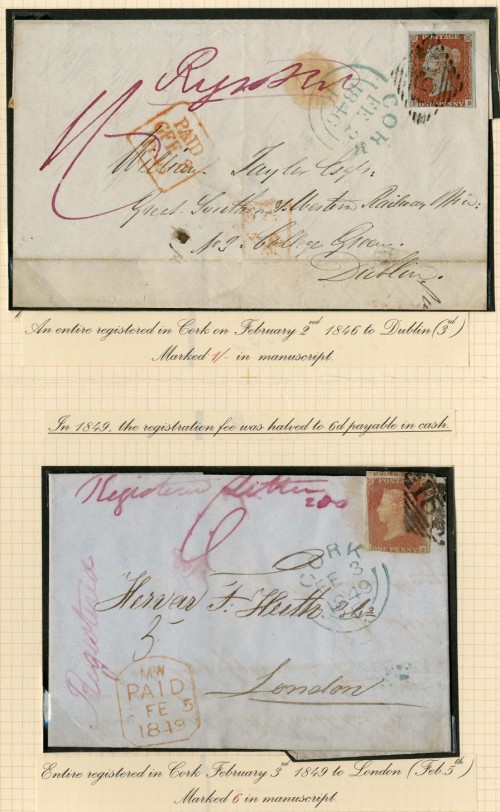 POSTAGE
ONE PENNY
CORK
FE 2
1846
PAID
FE 3
William Taylor Esqr
Great Southern & Western Railway
No 2. College Green
Dublin
An entire registered in Cork on February 2nd 1846 to Dublin (3rd)
Marked 1/- in manuscript.
In 1849, the registration fee was halved to 6d payable in cash.
Registered Letter
6
Registered
CORK
FE 3
1849
MW
PAID
FE 5
1849
London
Entire registered in Cork February 3rd 1849 to London (Feb. 5th)
Marked 6 in manuscript.